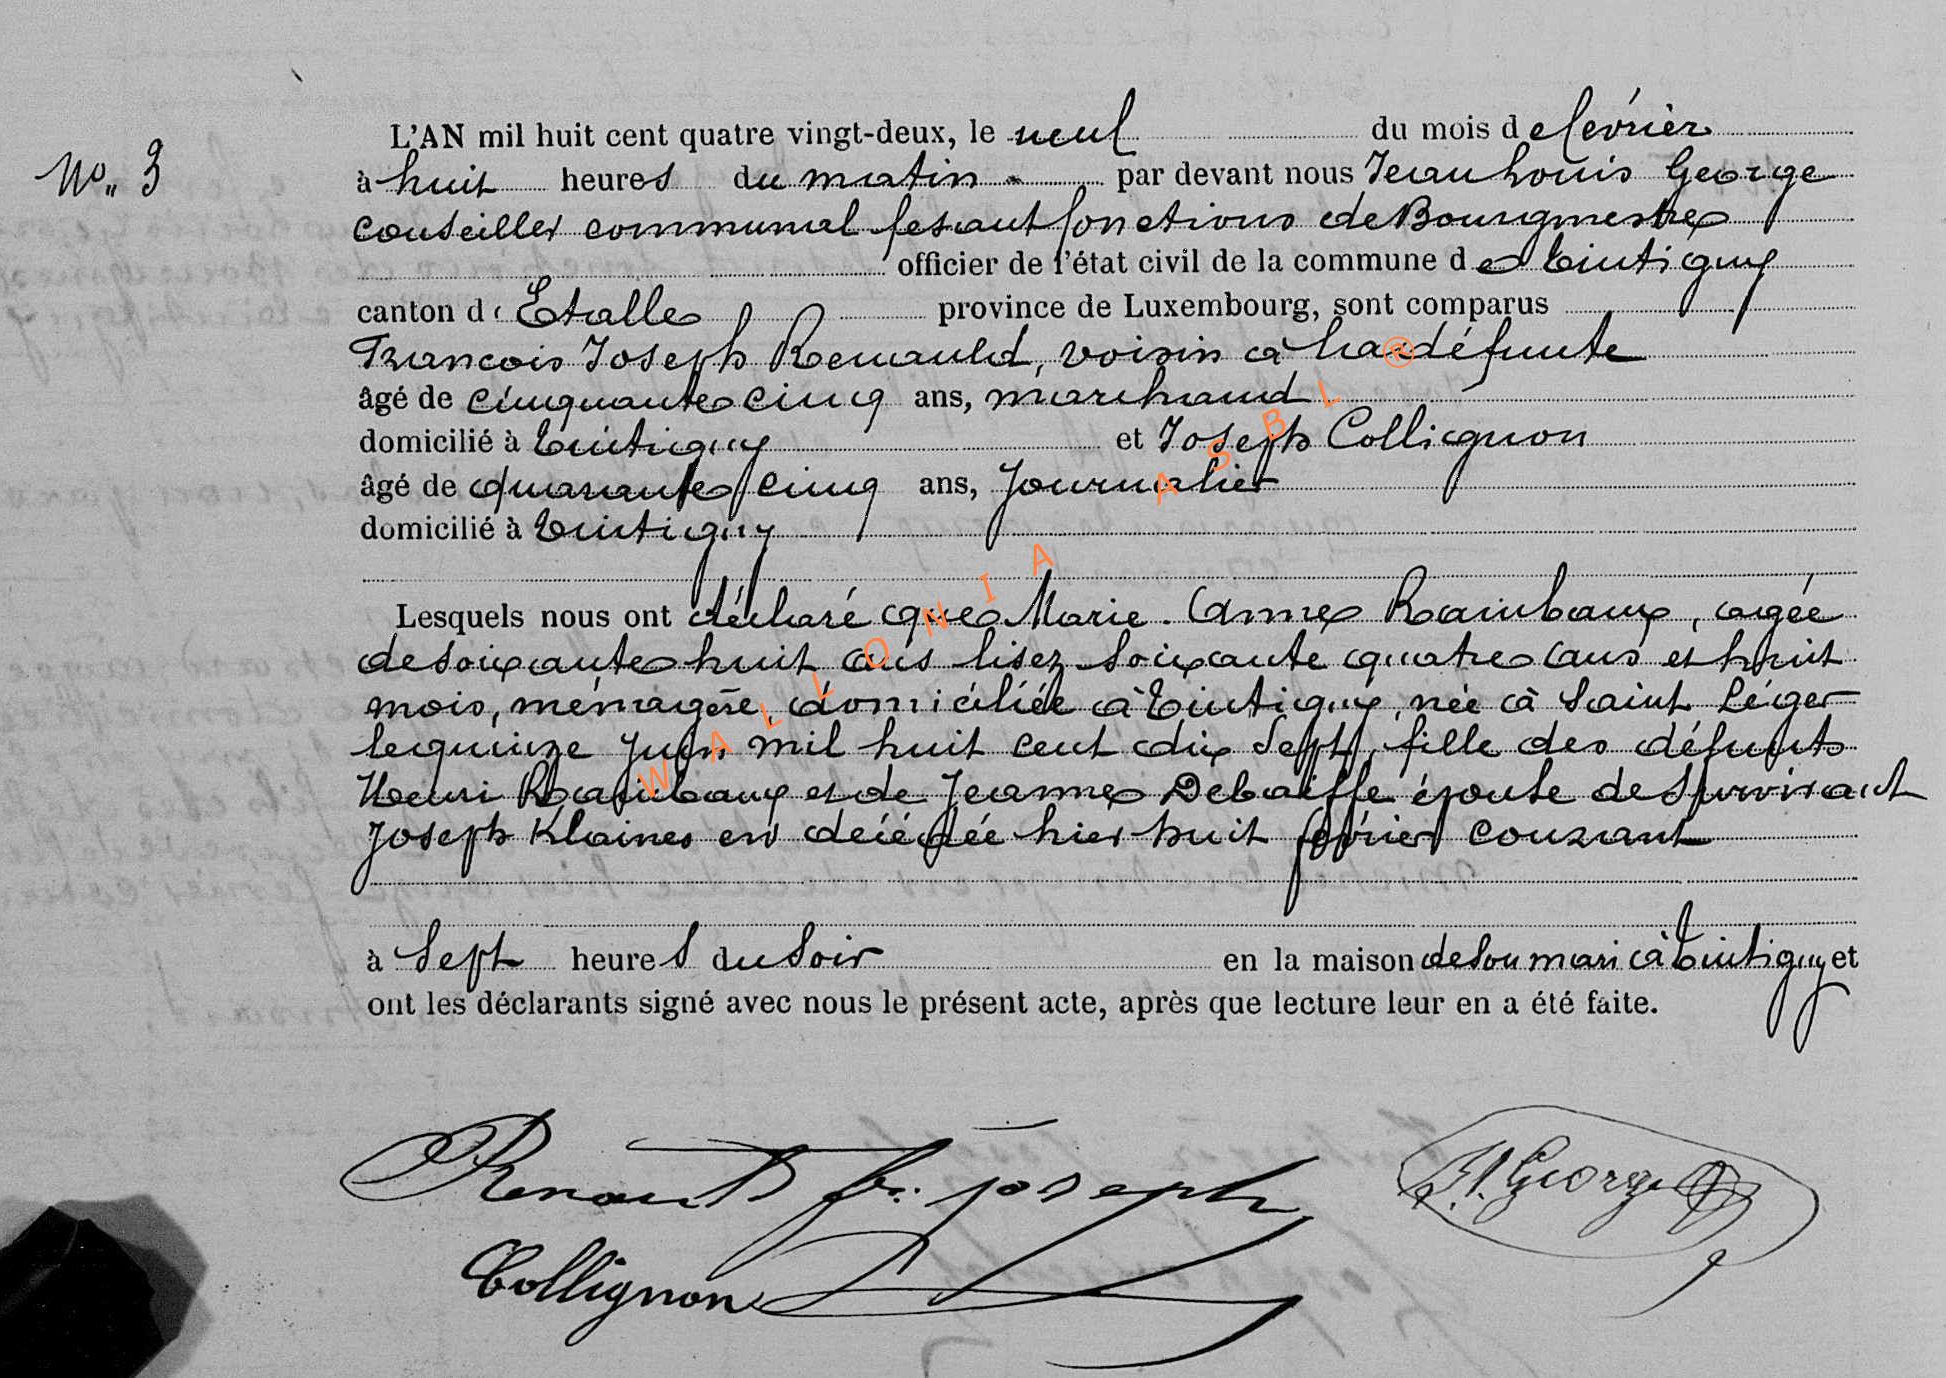 No. 3
L'AN mil huit cent quatre vingt-deux, le neuf du mois de février
à huit heures du matin par devant nous Jean Louis George
conseiller communal fesant fonctions de Bourgmestre
officier de l'état civil de la commune de Tintigny
canton d'Etalle province de Luxembourg, sont comparus
Francois Joseph Renauld, voisin à la défunte
âgé de cinquante cinq ans, marchand
domicilié à Tintigny et Joseph Collignon
âgé de quarante cinq ans, Journalier
domicilié à Tintigny
Lesquels nous ont déclaré que Marie. Anne Rainbaux, agée
de soixante huit ans lisez soixante quatre ans et huit
mois, ménagère, domiciliée à Tintigny, née à Saint Léger
le quinze Juin mil huit cent dix sept, fille des défunts
Henri Rainbaux et de Jeanne Debaiffe épouse de survivant
Joseph Klaines est décédée hier huit février courant
à sept heures du soir en la maison de son mari à Tintigny et
ont les déclarants signé avec nous le présent acte, après que lecture leur en a été faite.
Renauld fr. joseph
J. L. George
Collignon
WALLONIA ASBL ®